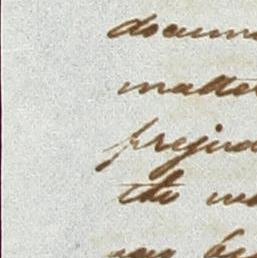 docum
matte
prejud
the w